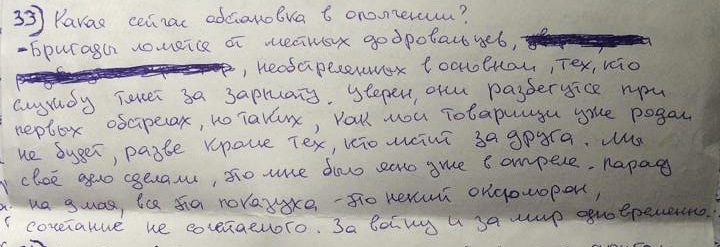 33) Какая сейчас обстановка в ополчении?
- Бригады ломятся от местных добровольцев,
, необстрелянных в основном, тех, кто
службу тянет за зарплату. Уверен, они разбегутся при
первых обстрелах, но таких, как мои товарищи уже рядом
не будет, разве кроме тех, кто мстит за друга. Мы
своё дело сделали, это мне было ясно уже в апреле. Парад
на 9 мая, вся эта показуха - это некий оксюморон,
сочетание не сочетаемого. За войну и за мир одновременно.